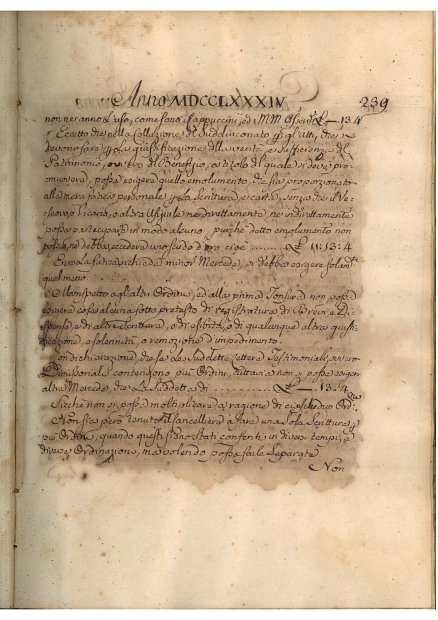 Anno MDCCLXXXIV 239
non ne sanno l'uso, come sono i Cappuccini, ed MM. Osserv. — 13:4
Eccetto che nella Collazione del Suddiaconato per gli atti, che
devono farsi per la giustificazione della verità, e sufficienza del
Patrimonio, ovvero del Beneficio, a titolo del quale si deve pro-
muovere, possa esigere quello emolumento, che sia proporzionato
alla mera fatica personale, per la Scrittura, e carta, senza che il Ve-
scovo, Vicario, o altro Uffiziale ne direttamente, ne indirettamente
possa participare in modo alcuno, purchè detto emolumento non
possa, ne debba eccedere uno scudo d'oro cioè 11:13:4
E se la fatica richiede minor Mercede, si debba esigere solam.te
quel meno.
Ma rispetto agl'altri Ordini, ed alla prima Tonsura non possa
esigere cosa alcuna sotto pretesto di registratura di Brevi e Di-
spense, e di altre Scritture, o di esibita, o di qualunque altra giusti-
ficazione, e solennità, o remozione d'impedimenti.
Con dichiarazione, che se le Suddette lettere Testimoniali, ovvero
Dimissoriali contenessero più Ordini, tuttavia non si possa esiger
altra Mercede, che la Suddetta di — 13:4
Sicche non si possa moltiplicare a ragione di ciaschedun Ord.ne
Non sia però tenuto il Cancelliere a fare una sola Scrittura per
più Ordini, quando questi siano stati conferiti in diversi tempi, e
diverse Ordinazioni, ma volendo possa farle separate.
Non